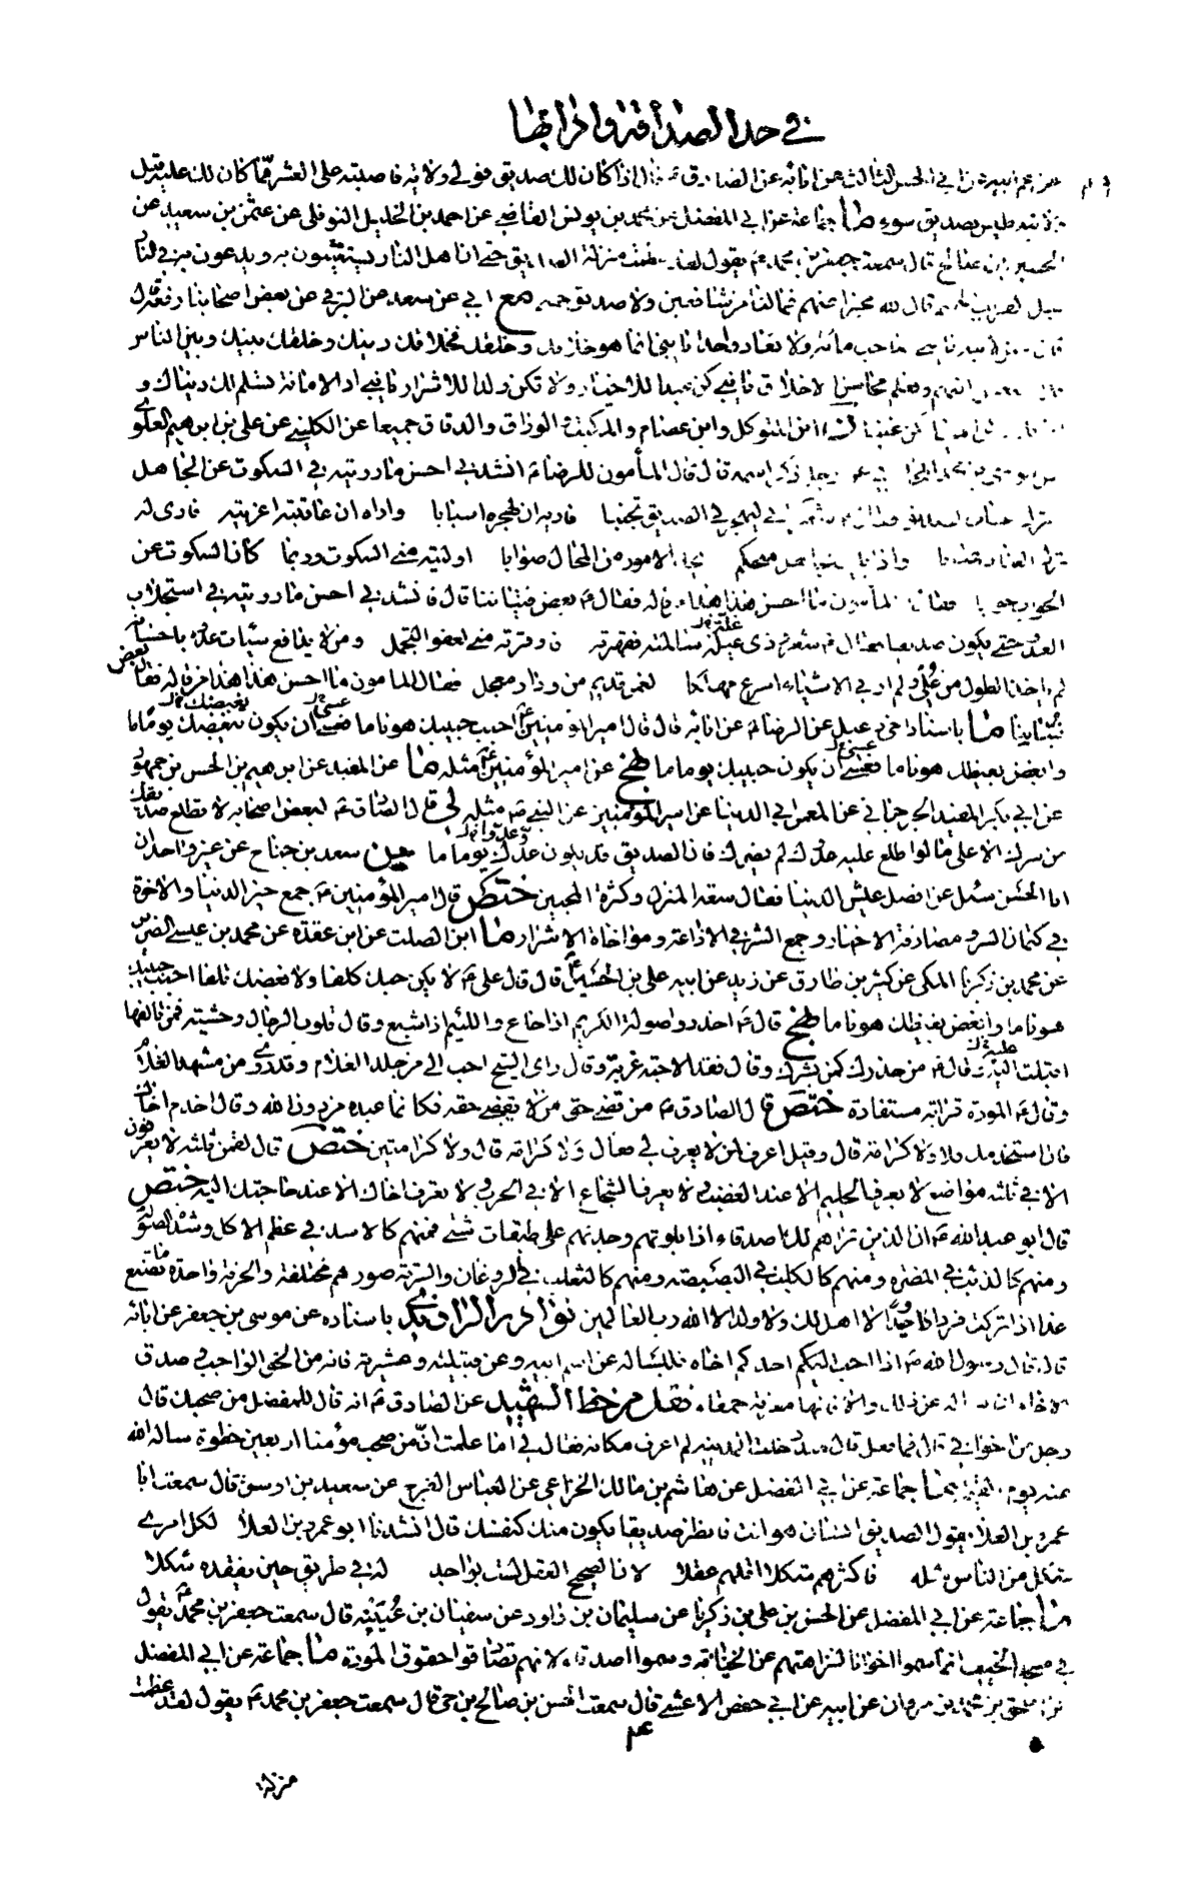 في حد الصداقة وادابها
عن عم ابيه عن ابي الحسن الثالث عن ابائه عن الصادق قال اذا كان لك صديق فولي ولاية فاصبته على العشر مما كان لك عليه قبل
ولايته فليس بصديق سوء ما جماعة عن ابي المفضل عن محمد بن يونس القاضي عن احمد بن الخليل النوفلي عن عثمن بن سعيد عن
الحسن بن صالح قال سمعت جعفر بن محمد ع يقول لقد عظمت منزلة الصديق حتى ان اهل النار يستغيثون به ويدعون به في النار
قبل القريب قال الله مخبرا عنهم فما لنا من شافعين ولا صديق حميم مع ابي عن سعد عن البرقي عن بعض اصحابنا رفعه
قال لابنه يا بني صاحب مائة ولا تعاد واحدا يا بني انما هو خلاقك وخلقك فخلاقك دينك وخلقك بينك وبين الناس
وتعلم محاسن الاخلاق يا بني كن عبدا للاخيار ولا تكن ولدا للاشرار يا بني اد الامانة تسلم لك دنياك و
ابن المتوكل وابن عصام والمكتب والوراق والدقاق جميعا عن الكليني عن علي بن ابرهيم العلوي
ذكر اسمه قال قال المأمون للرضا ع انشدني احسن ما رويته في السكوت عن الجاهل
في الصديق تجنبا فاريه ان لهجره اسبابا واراه ان عاتبته اغريته فارى له
ترك العتاب عتابا واذا بليت بجاهل متحكم يجد الامور من المحال صوابا اوليته مني السكوت وربما كان السكوت عن
الجواب جوابا فقال المأمون ما احسن هذا من قاله فقال ع بعض فتياننا قال فانشدني احسن ما رويته في استجلاب
العدو حتى يكون صديقا فقال ع شعر وذي غلة سالمته فقهرته فاوقرته مني لعفو التجمل ومن لا يدافع سيئات عدوه باحسانه
لم ياخذ الطول من عل ولم ار في الاشياء اسرع مهلكا لغمر قديم من وداد معجل فقال المامون ما احسن هذا هذا من قاله فقال بعض
فتياننا ما باسناد اخي دعبل عن الرضا ع عن ابائه قال قال امير المؤمنين ع احبب حبيبك هونا ما فعسى ان يكون بغيضك يوما ما
وابغض بغيضك هونا ما فعسى ان يكون حبيبك يوما ما نهج عن امير المؤمنين ع مثله ما عن المفيد عن ابرهيم بن الحسن بن جمهور
عن ابي بكر المفيد الجرجرائي عن المعمر ابي الدنيا عن امير المؤمنين عن النبي ص مثله لي قال الصادق ع لبعض اصحابه لا تطلع صديقك
من سرك الا على ما لو اطلع عليه عدوك لم يضرك فان الصديق قد يكون عدوك يوما ما سن سعد بن جناح عن غير واحد ان
ابا الحسن سئل عن افضل عيش الدنيا فقال سعة المنزل وكثرة المحبين ختص قال امير المؤمنين ع جمع خير الدنيا والاخرة
في كتمان السر ومصادقة الاخيار وجمع الشر في الاذاعة ومؤاخاة الاشرار ما ابن الصلت عن ابن عقدة عن محمد بن عيسى الضرير
عن محمد بن زكريا المكي عن كثير بن طارق عن زيد عن ابيه علي بن الحسين ع قال قال علي ع لا يكن حبك كلفا ولا بغضك تلفا احبب حبيبك
هونا ما وابغض بغيضك هونا ما نهج قال ع احذروا صولة الكريم اذا جاع واللئيم اذا شبع وقال قلوب الرجال وحشية فمن تالفها
اقبلت اليه وقال ع من حذرك كمن بشرك وقال فقد الاحبة غربة وقال راي الشيخ احب الي من جلد الغلام وقد روي من مشهد الغلام
وقال ع المودة قرابة مستفادة ختص قال الصادق ع من قضى حق من لا يقضي حقه فكانما عبده من دون الله وقال اخدم اخاك
فان استخدمك فلا ولا كرامة قال وقيل اعرف لمن لا يعرف لي فقال ولا كرامة قال ولا كرامتين ختص قال لقمن ثلثة لا يعرفون
الا في ثلثة مواضع لا يعرف الحليم الا عند الغضب ولا يعرف الشجاع الا في الحرب ولا تعرف اخاك الا عند حاجتك اليه ختص
قال ابو عبد الله ع ان الذين تراهم لك اصدقاء اذا بلوتهم وجدتهم على طبقات شتى فمنهم كالاسد في عظم الاكل وشدة الصولة
ومنهم كالذئب في المضرة ومنهم كالكلب في البصبصة ومنهم كالثعلب في الروغان والسرقة صورهم مختلفة والحرفة واحدة ما تصنع
غدا اذا تركت فردا وحيدا لا اهل لك ولا ولد الا الله رب العالمين نوادر الراوندي باسناده عن موسى بن جعفر عن ابائه
قال قال رسول الله ص اذا احب احدكم اخاه فليساله عن اسم ابيه وعن قبيلته وعشيرته فانه من الحق الواجب وصدق
الاخاء ان يساله عن ذلك والا فانها معرفة حمقاء نقل من خط الشهيد عن الصادق ع انه قال للمفضل من صحبك قال
رجل من اخواني قال فما فعل قال منذ دخلت المدينة لم اعرف مكانه فقال لي اما علمت ان من صحب مؤمنا اربعين خطوة ساله الله
عنه يوم القيمة ما جماعة عن ابي المفضل عن هاشم بن مالك الخزاعي عن العباس الفرج عن سعيد بن اوس قال سمعت ابا
عمرو بن العلاء يقول الصديق انسان هو انت فانظر صديقا يكون منك كنفسك قال انشدنا ابو عمرو بن العلا لكل امرئ
شكل من الناس مثله فاكثرهم شكلا اقلهم عقلا لان الصحيح العقل لست بواجد له في طريق حين يفقده شكلا
ما جماعة عن ابي المفضل عن الحسن بن علي بن زكريا عن سليمان بن داود عن سفيان بن عيينة قال سمعت جعفر بن محمد ع يقول
في مسجد الخيف انما سموا اخوانا لنزاهتهم عن الخيانة وسموا اصدقاء لانهم تصادقوا حقوق المودة ما جماعة عن ابي المفضل
عن اسحق بن محمد بن مروان عن ابيه عن ابي حفص الاعشى قال سمعت الحسن بن صالح بن حي قال سمعت جعفر بن محمد ع يقول لقد عظمت
منزلة